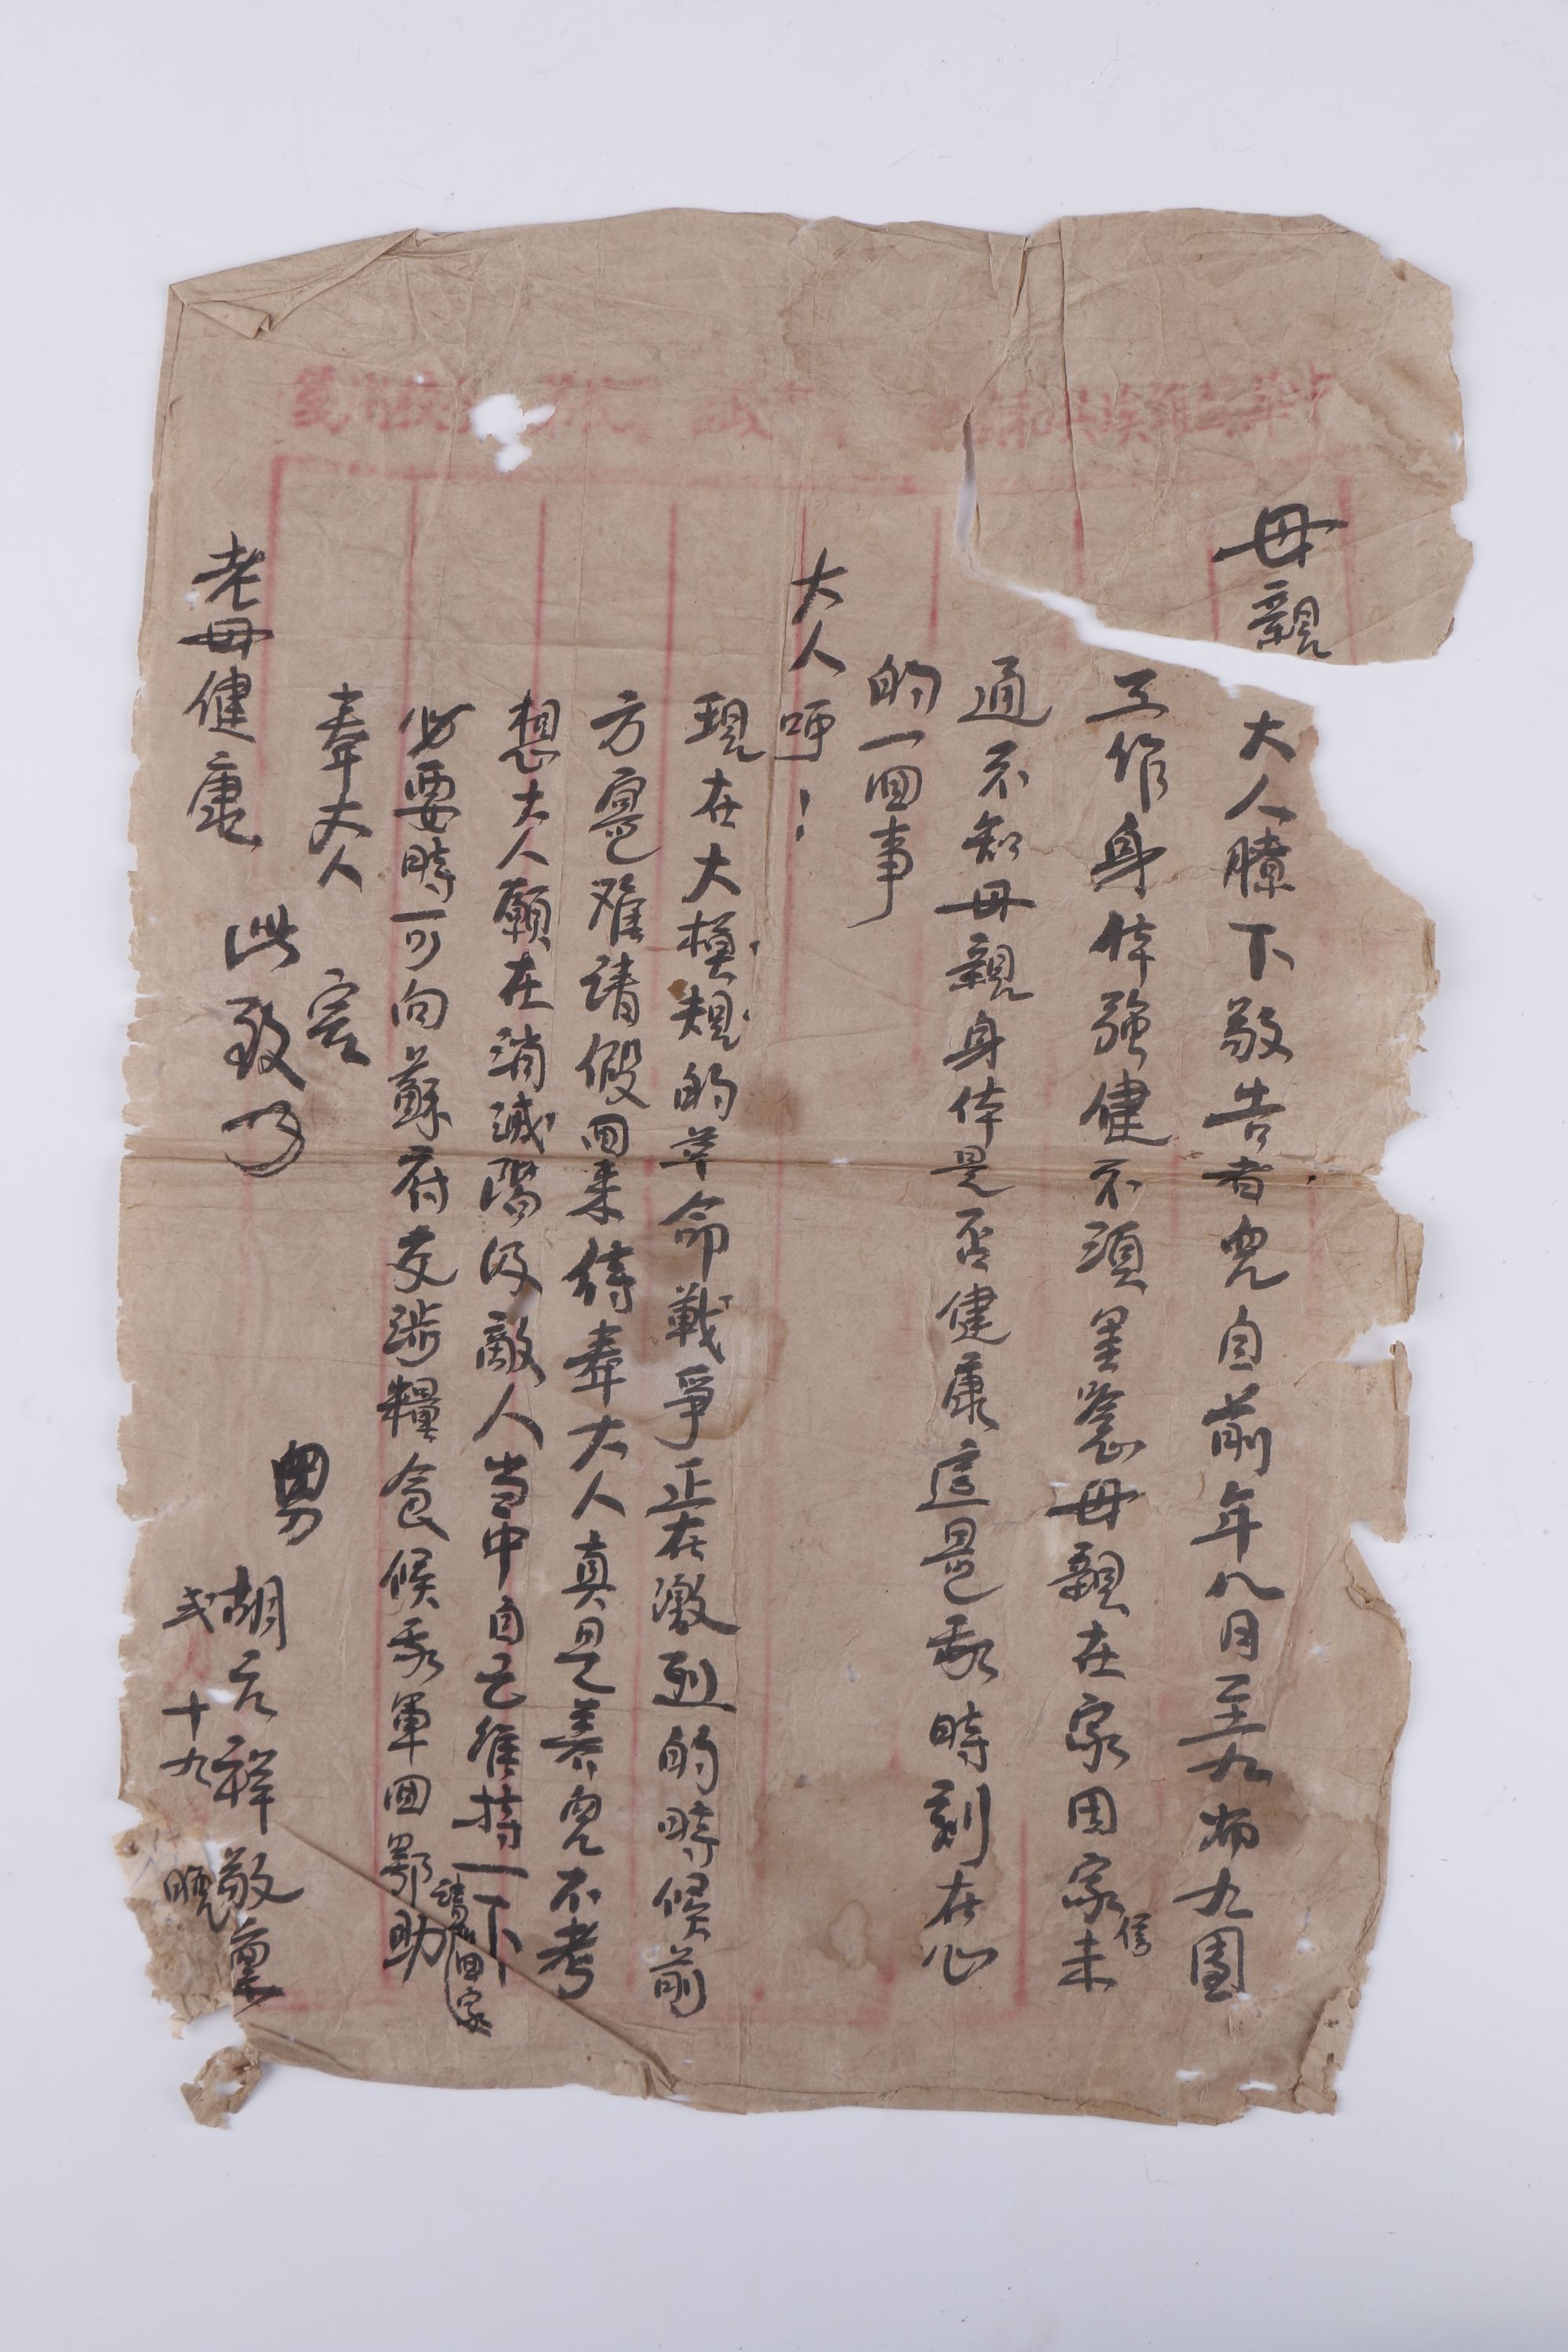 中華蘇維埃共和國
母親
大人膝下敬告者兒自前年八月至九師九團
工作身体强健不須罣念母親在家因家信未
通不知母親身体是否健康這是我時刻在心
的一回事
大人呀!
現在大模規的革命戰爭正在激烈的時候前
方寔难請假回来侍奉大人真是養兒不孝
想大人願在消滅階級敵人当中自己維持一下
必要時可向蘇府交涉糧食候我軍回鄂請假回家助
奉大人 寔
老母健康 此致
男 胡元祥敬禀
弍 十九 晚